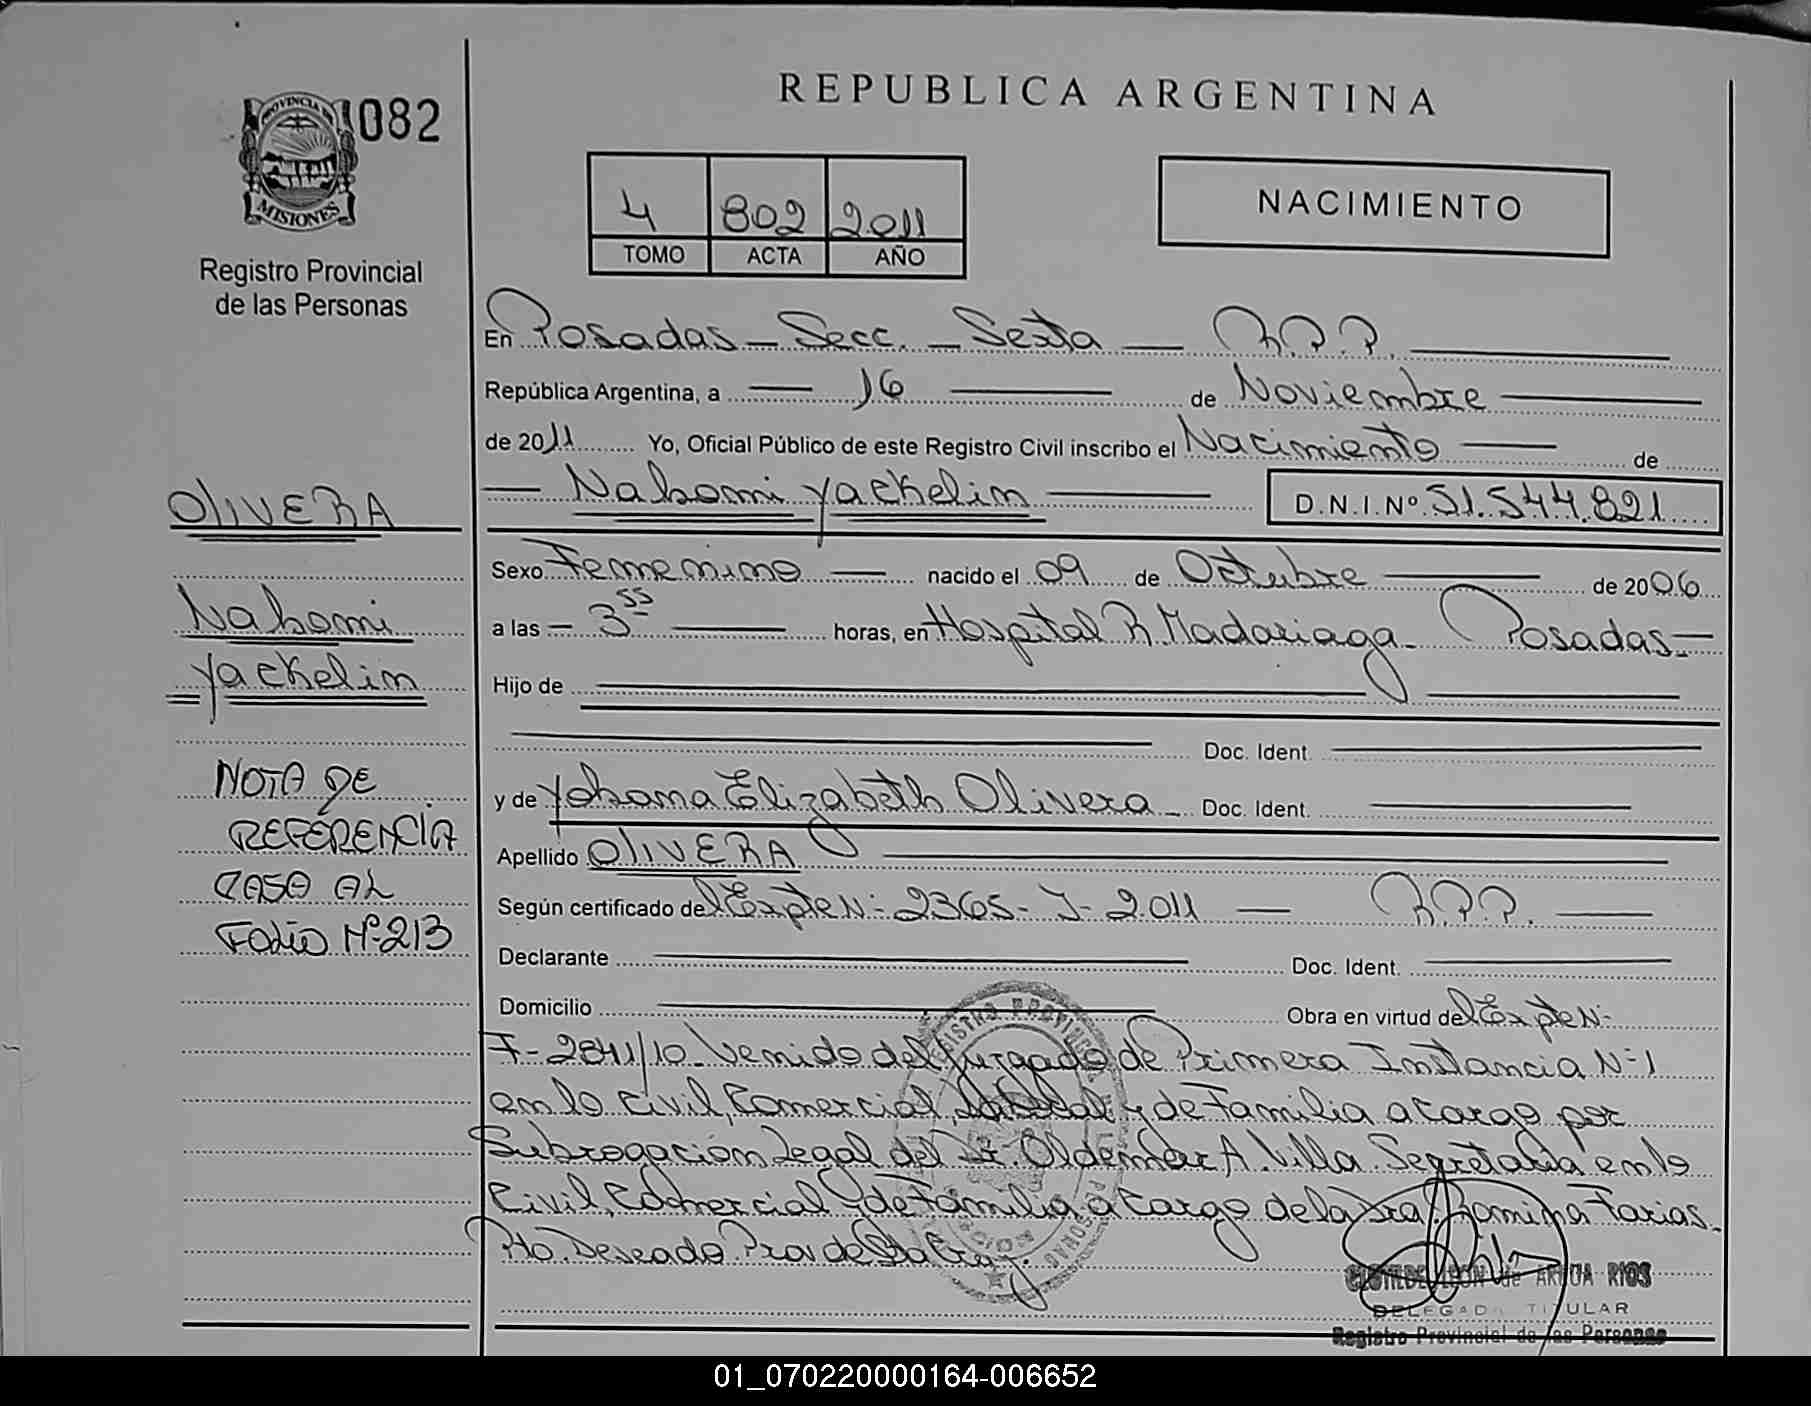 REPUBLICA ARGENTINA
PROVINCIA DE
MISIONES
1082
Registro Provincial
de las Personas
4 802 2011
TOMO ACTA AÑO
NACIMIENTO
En Posadas - Secc. - Sexta - R.P.P.
República Argentina, a 16 de Noviembre
de 2011 Yo, Oficial Público de este Registro Civil inscribo el Nacimiento de
Nahomi Yackelin D.N.I.Nº 51.544.821
OLIVERA
Nahomi
Yackelin
NOTA DE
REFERENCIA
CASO AL
FOLIO Nº 213
Sexo Femenino nacido el 09 de Octubre de 2006
a las 3 55 horas, en Hospital R. Madariaga - Posadas -
Hijo de
Doc. Ident.
y de Yohana Elizabeth Olivera - Doc. Ident.
Apellido OLIVERA
Según certificado del Expte N: 2365 - J - 2011 - R.P.P.
Declarante Doc. Ident.
Domicilio Obra en virtud del Expte N:
F-2841/10 - Venido del Juzgado de Primera Instancia N: 1
en lo Civil, Comercial, Laboral y de Familia a cargo por
Subrogación Legal del Dr. Oldemar A. Villa. Segretaria en lo
Civil, Comercial y de Familia a cargo de la Dra. Romina Farias.
Pto. Deseado Prov de Sta Cruz.
DELEGADA TITULAR
Registro Provincial de las Personas
01_070220000164-006652